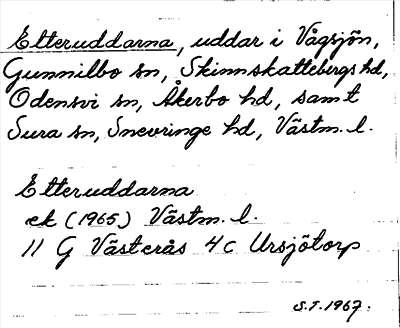 Etteruddarna, uddar i Vågsjön,
Gunnilbo sn, Skinnskattebergs hd,
Odensvi sn, Åkerbo hd, samt
Sura sn, Snevringe hd, Västm. l.
Etteruddarna
ek (1965) Västm. l.
11 G Västerås 4c Ursjötorp
S.T. 1967.